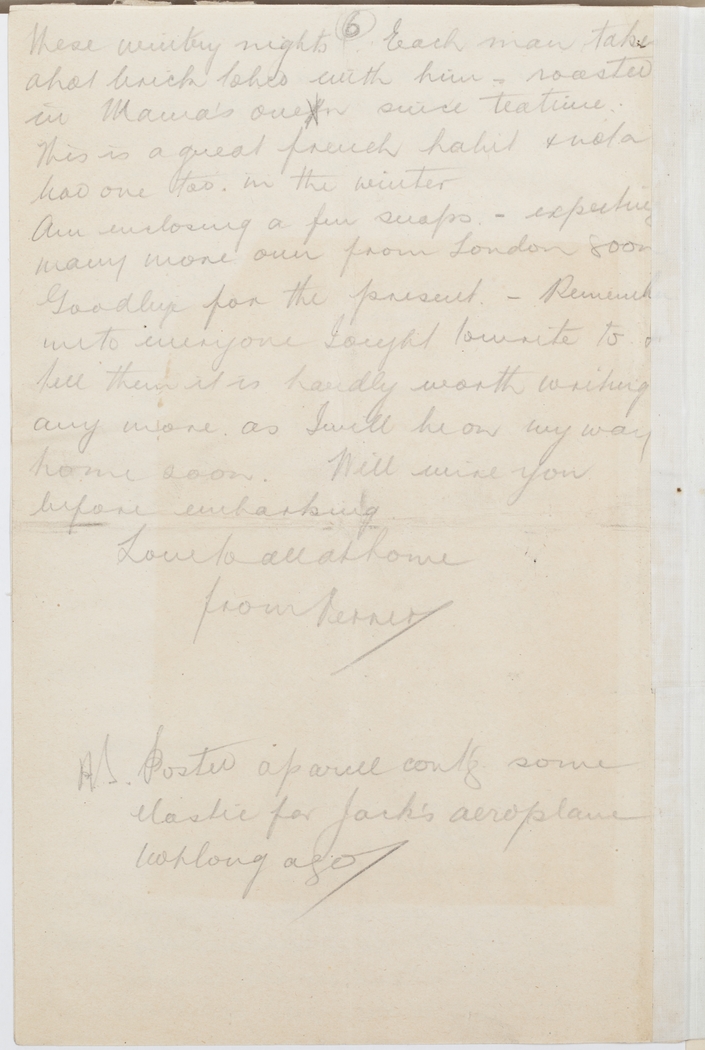 6
these wintry nights. Each man takes
a hot brick to bed with him - roasted
in Mama's oven since teatime.
This is a great french habit & not a
bad one too. in the winter
Am enclosing a few snaps. - expecting
many more over from London soon
Goodbye for the present. - Rememb
me to everyone I ought to write to &
tell them it is hardly worth writing
any more. as I will be on my way
home soon. Will wire you
before embarking.
Love to all at home
from
P.S. Posted a parcel contg some
elastic for Jack's aeroplane
not long ago